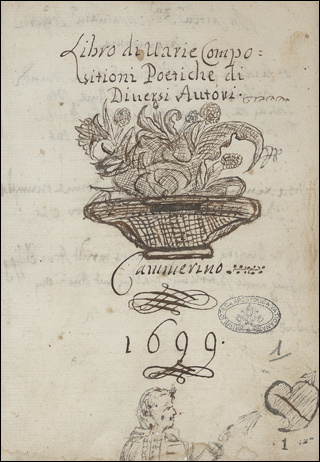 Libro di Uarie Compo=
sitioni Poetiche di
Diuersi Autori.
Cammerino
1699.
1
1